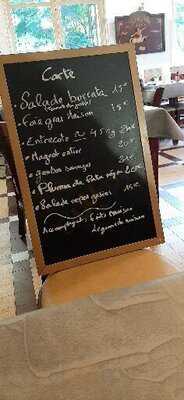 Carte
• Salade burrata 15€
• Foie gras maison 15€
• Entrecote ~ 450g 26€
• Magret entier
• gambas sauvages
• Pluma de Pata negra
• Salade repas gésiers 15€
Accompagnés, frites maison
Légumes de saison